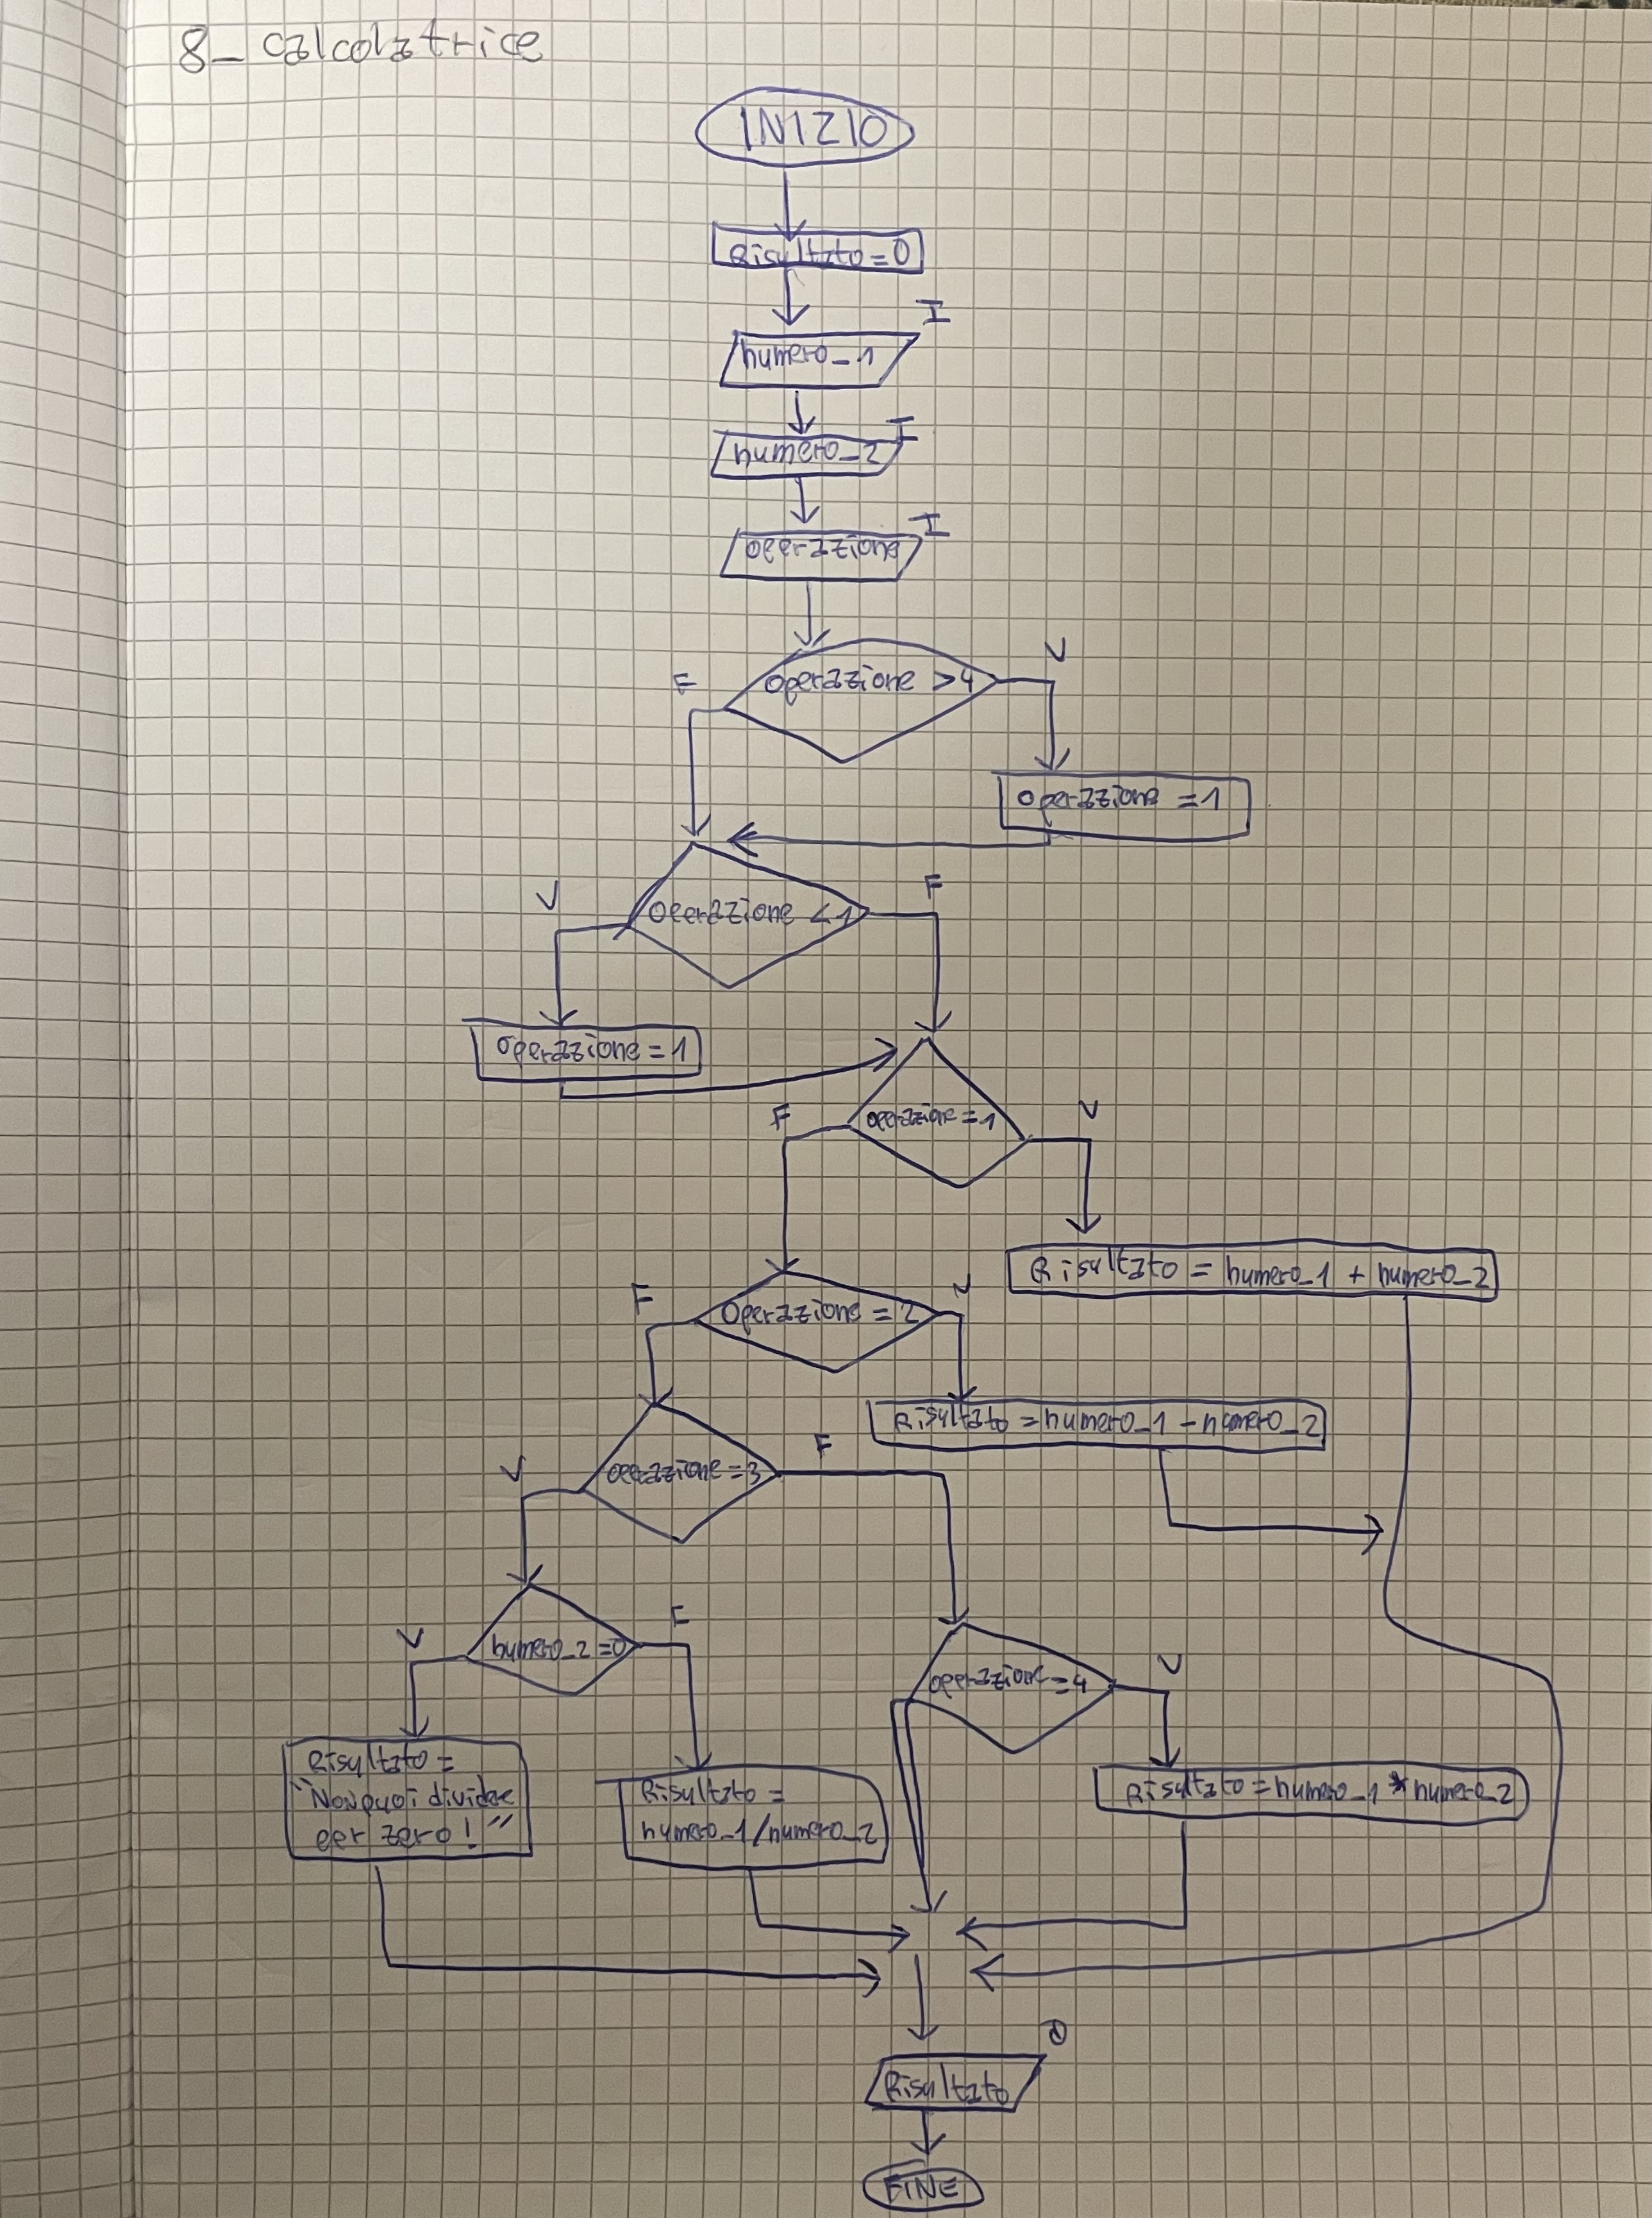 8_calcolatrice
INIZIO
Risultato=0
I
numero_1
I
numero_2
I
operazione
F
operazione >4
V
operazione =1
V
operazione <1
F
operazione =1
F
operazione=1
V
Risultato = numero_1 + numero_2
F
operazione = 2
V
Risultato =numero_1 - numero_2
V
operazione =3
F
V
numero_2 =0
F
operazione =4
V
Risultato =
"Non puoi dividere
per zero!"
Risultato =
numero_1/numero_2
Risultato =numero_1 * numero_2
O
Risultato
FINE